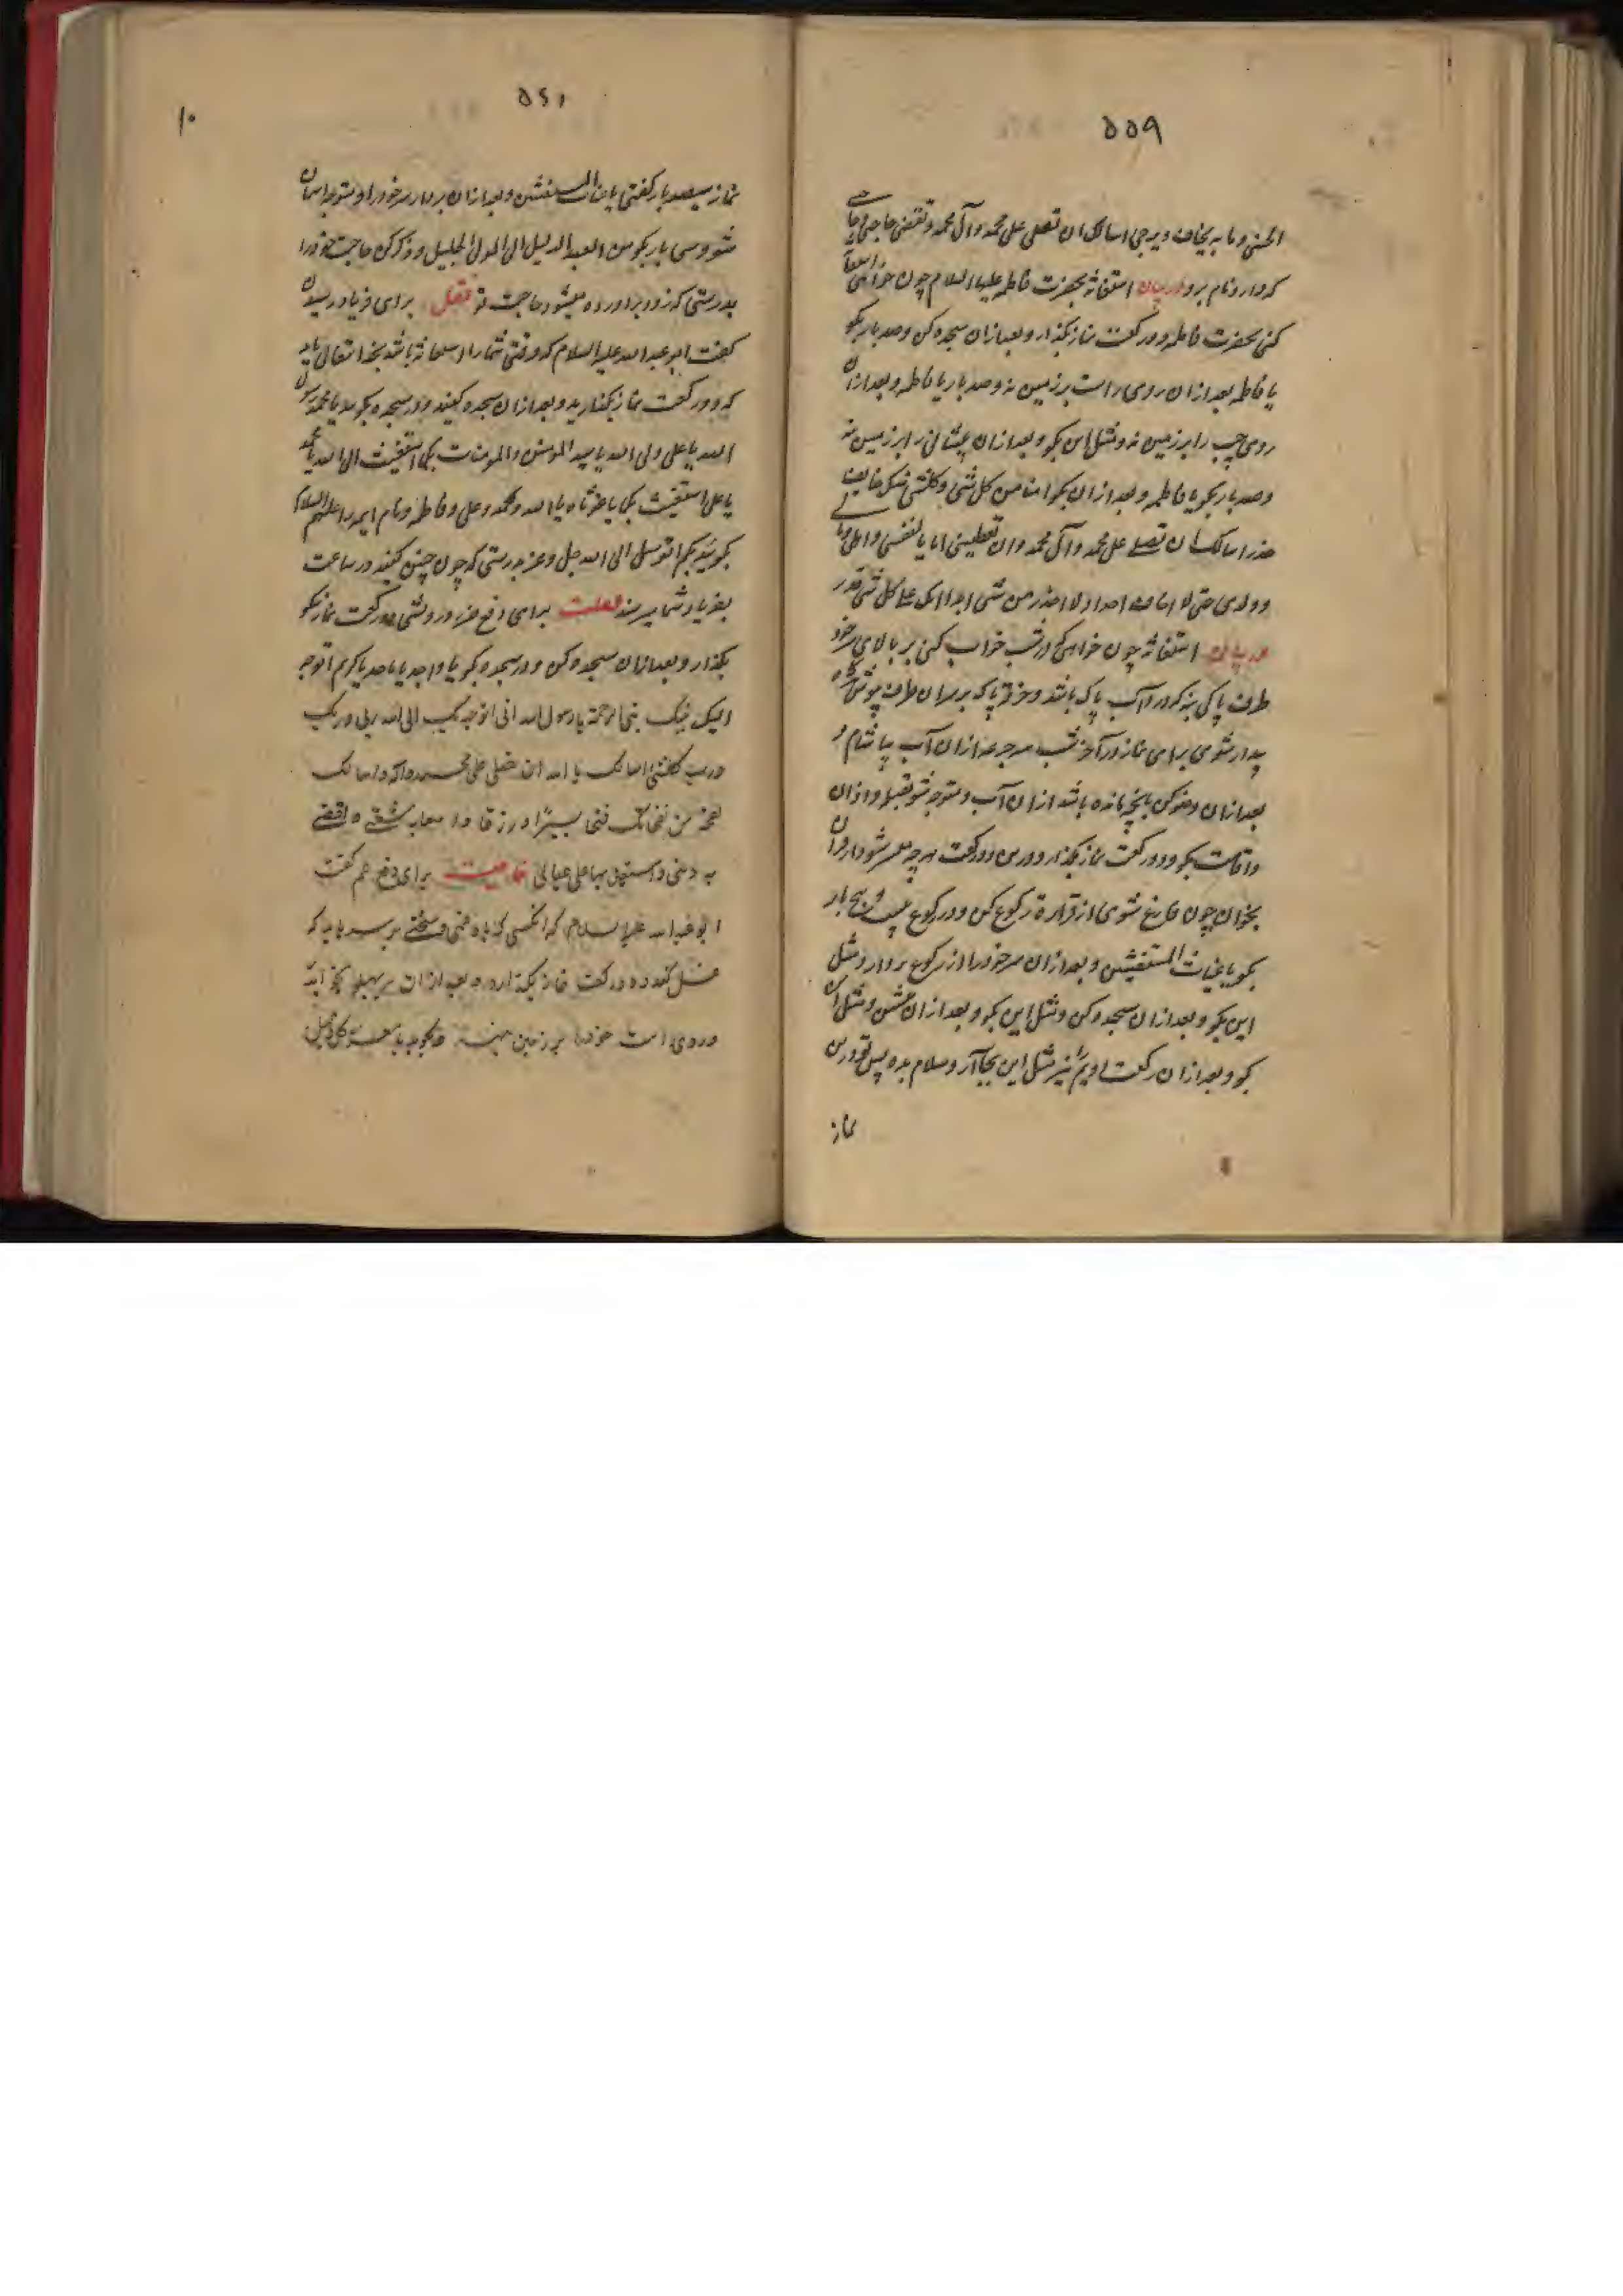 ۵۵۹
الحسنی و ما به یخاف و یرجی اسالک ان تصلی علی محمد و آل محمد و تقضی حاجتی و حاجت
که دارد نام برد در بیان استغاثه بحضرت فاطمه علیها السلام چون خواهی استغاثه
کنی بحضرت فاطمه دو رکعت نماز بگذار و بعد ازان سجده کن و صد بار بگو
یا فاطمه بعد ازان روی راست بر زمین نه و صد بار یا فاطمه و بعد ازان
روی چپ را بر زمین نه و مثل این بگو و بعد ازان پیشانی را بر زمین نه
و صد بار بگو یا فاطمه و بعد ازان بگو امنا من کل شیء و کلشی منک خایف
حذر اسالک ان تصلی علی محمد و آل محمد و ان تعطینی امانا لنفسی و اهلی و مالی
و ولدی حتی لا اخاف احدا و لا احذر من شی ابدا انک علی کل شی قدیر
در بیان استغاثه چون خواهی که در شب خواب کنی بر بالای سر خود
ظرف پاکی بنه که در او آب پاک باشد و خرقه پاکی بر سر ان ظرف پوش
بیدار شوی برای نماز در آخر شب سه جرعه ازان آب بیاشام و
بعد ازان وضو کن بانچه مانده باشد ازان آب و متوجه شو بقبله و اذان
و اقامت بگو و دو رکعت نماز بگذار و درین دو رکعت هر چه میسر شود از قرآن
بخوان چون فارغ شوی از قراءة رکوع کن و در رکوع بیست و پنج بار
بگو یا غیاث المستغیثین و بعد ازان سر خود را از رکوع بردار و مثل
این بگو و بعد ازان سجده کن و مثل این بگو و بعد ازان بنشین و مثل آن
بگو و بعد ازان رکعت دویم نیز مثل این بجا آر و سلام بده پس تو درین
نماز
۵۶۰
۱۰
نماز سیصد بار گفتی یا غیاث المستغیثین و بعد ازان بردار سر خود را و متوجه آسمان
شو و سی بار بگو من العبد الذلیل الی المولی الجلیل و ذکر کن حاجت خود را
بدرستی که زود برآورده میشود حاجت تو برای فریاد رسیدن
گفت ابو عبد الله علیه السلام که وقتی شما را استغاثه باشد بخدا تعالی باید
که دو رکعت نماز بگذارید و بعد ازان سجده کنید و در سجده بگویید یا محمد رسول
الله یا علی ولی الله یا سید المؤمنین و المومنات بکما استغیث الی الله یا محمد
یا علی استغیث بکما یا غوثاه یا الله و محمد و علی و فاطمه و نام ایمه را علیهم السلام
بگویید بکم اتوسل الی الله جل و عز بدرستی که چون چنین کنید در ساعت
بفریاد شما میرسند برای دفع فقر و درویشی دو رکعت نماز نیکو
بگذار و بعد ازان سجده کن و در سجده بگو یا واجد یا ماجد یا کریم اتوجه
الیک بنبیک نبی الرحمة یا رسول الله انی اتوجه بک الی الله ربی و ربک
و رب کلشی اسالک یا الله ان تصلی علی محمد و آله و اسالک
نفحة من نفحاتک فتحا یسیرا و رزقا واسعا به شعثی و اقضی
به دینی و استعین بها علی عیالی برای دفع غم گفت
ابو عبد الله علیه السلام که انکسی که باو غمی و سختی برسد باید که
غسل کند و دو رکعت نماز بگذارد و بعد ازان بر پهلو بخوابد
و روی راست خود را بر زمین نهد و بگوید یا معز کل ذلیل